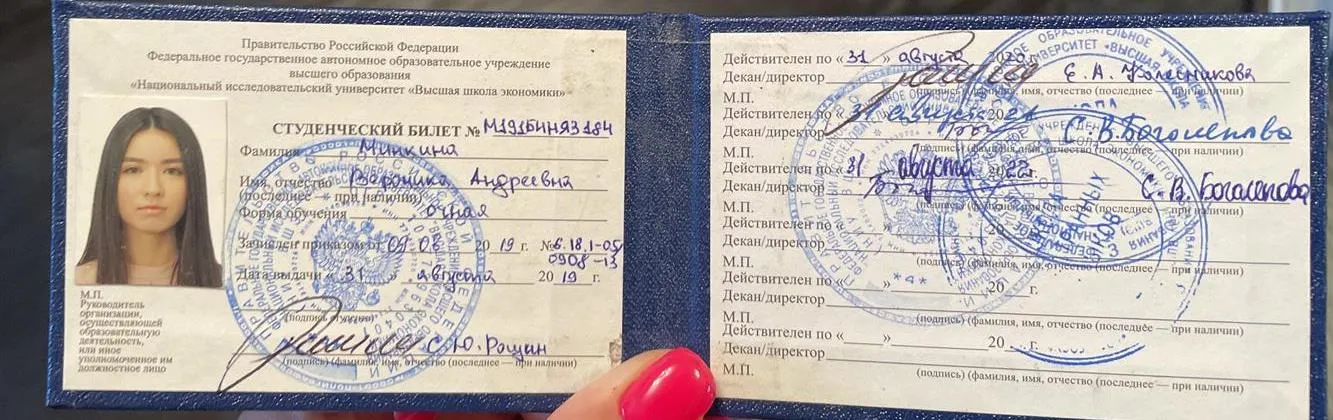 Правительство Российской Федерации
Федеральное государственное автономное образовательное учреждение
высшего образования
«Национальный исследовательский университет «Высшая школа экономики»
СТУДЕНЧЕСКИЙ БИЛЕТ № М191БИНЯЗ184
Фамилия Минкина
Имя, отчество Вероника Андреевна
(последнее — при наличии)
Форма обучения очная
Зачислен приказом от 09.08 2019 г. № 6.18.1-05/
0908-13
Дата выдачи « 31 » августа 2019 г.
(подпись студента)
С.Ю. Рощин
(подпись) (фамилия, имя, отчество (последнее — при наличии)
М.П.
Руководитель
организации,
осуществляющей
образовательную
деятельность,
или иное
уполномоченное им
должностное лицо
Действителен по « 31 » августа 2020 г.
Декан/директор Е.А. Колесникова
М.П. (подпись) (фамилия, имя, отчество (последнее — при наличии)
Действителен по « 31 » августа 2021
Декан/директор С.В. Боголепова
М.П. (подпись) (фамилия, имя, отчество (последнее — при наличии)
Действителен по « 31 » августа 2022 г.
Декан/директор С.В. Боголепова
М.П. (подпись) (фамилия, имя, отчество (последнее — при наличии)
Действителен по « » 20
Декан/директор
М.П. (подпись) (фамилия, имя, отчество (последнее — при наличии)
Действителен по « » 20 г.
Декан/директор
М.П. (подпись) (фамилия, имя, отчество (последнее — при наличии)
Действителен по « » 20 г.
Декан/директор
М.П. (подпись) (фамилия, имя, отчество (последнее — при наличии)